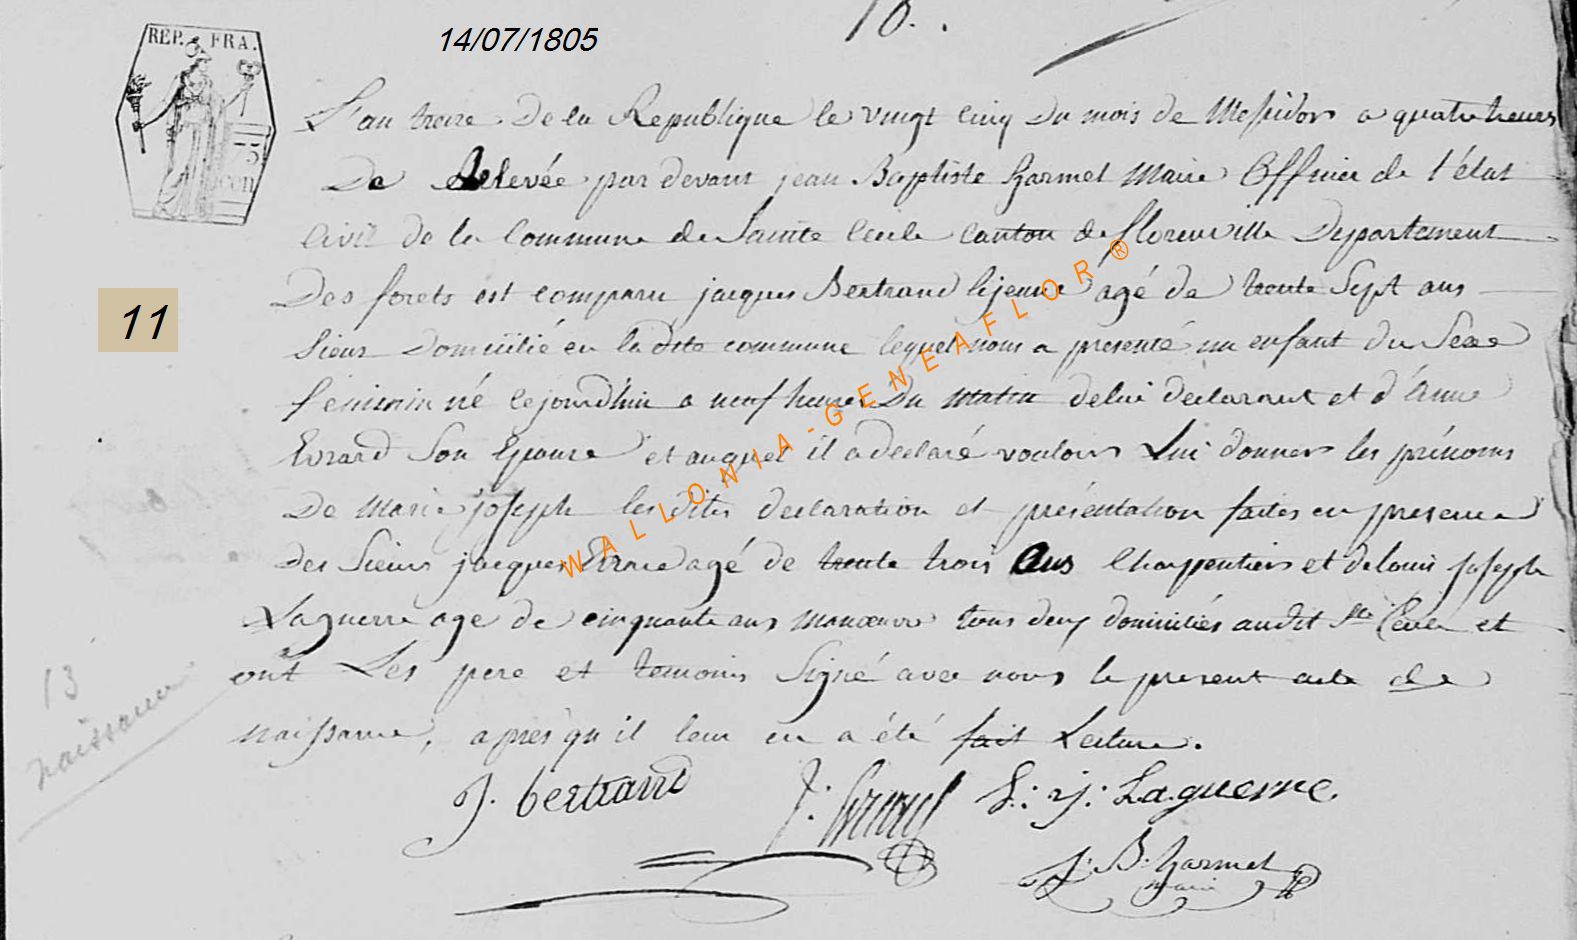 10.
14/07/1805
REP. FRA.
75
cen
L'an treize De la Republique le vingt cinq du mois de Messidor a quatre heures
De Relevée par devant jean Baptiste Harmel Maire Officier de l'état
Civil de la Commune de Sainte Cecile canton de florenville Departement
Des forets est comparu jacques Bertrand lejeune agé de trente Sept ans
11
Sieur Domicilié en la dite commune lequel nous a presenté un enfant du Sexe
feminin né cejourd'hui a neuf heures Du Matin de lui declarant et d'Anne
Evrard Son Epouse et auquel il a declaré vouloir Lui donner les prénoms
De Marie joseph les dites declaration et présentation faites en presence
des Sieurs jacques agé de trente trois Ans Charpentier et de louis joseph
Laguerre age de cinquante ans Manoeuvre tous deux domiciliés audit Ste Cecile et
ont Les pere et temoins Signé avec nous le present acte de
naissance, après qu'il leur en a été fait Lecture.
13
naissance
J. bertrand
L: J: Laguerre
J. B. Harmel
maire
WALLONIA-GENEAFLOR®